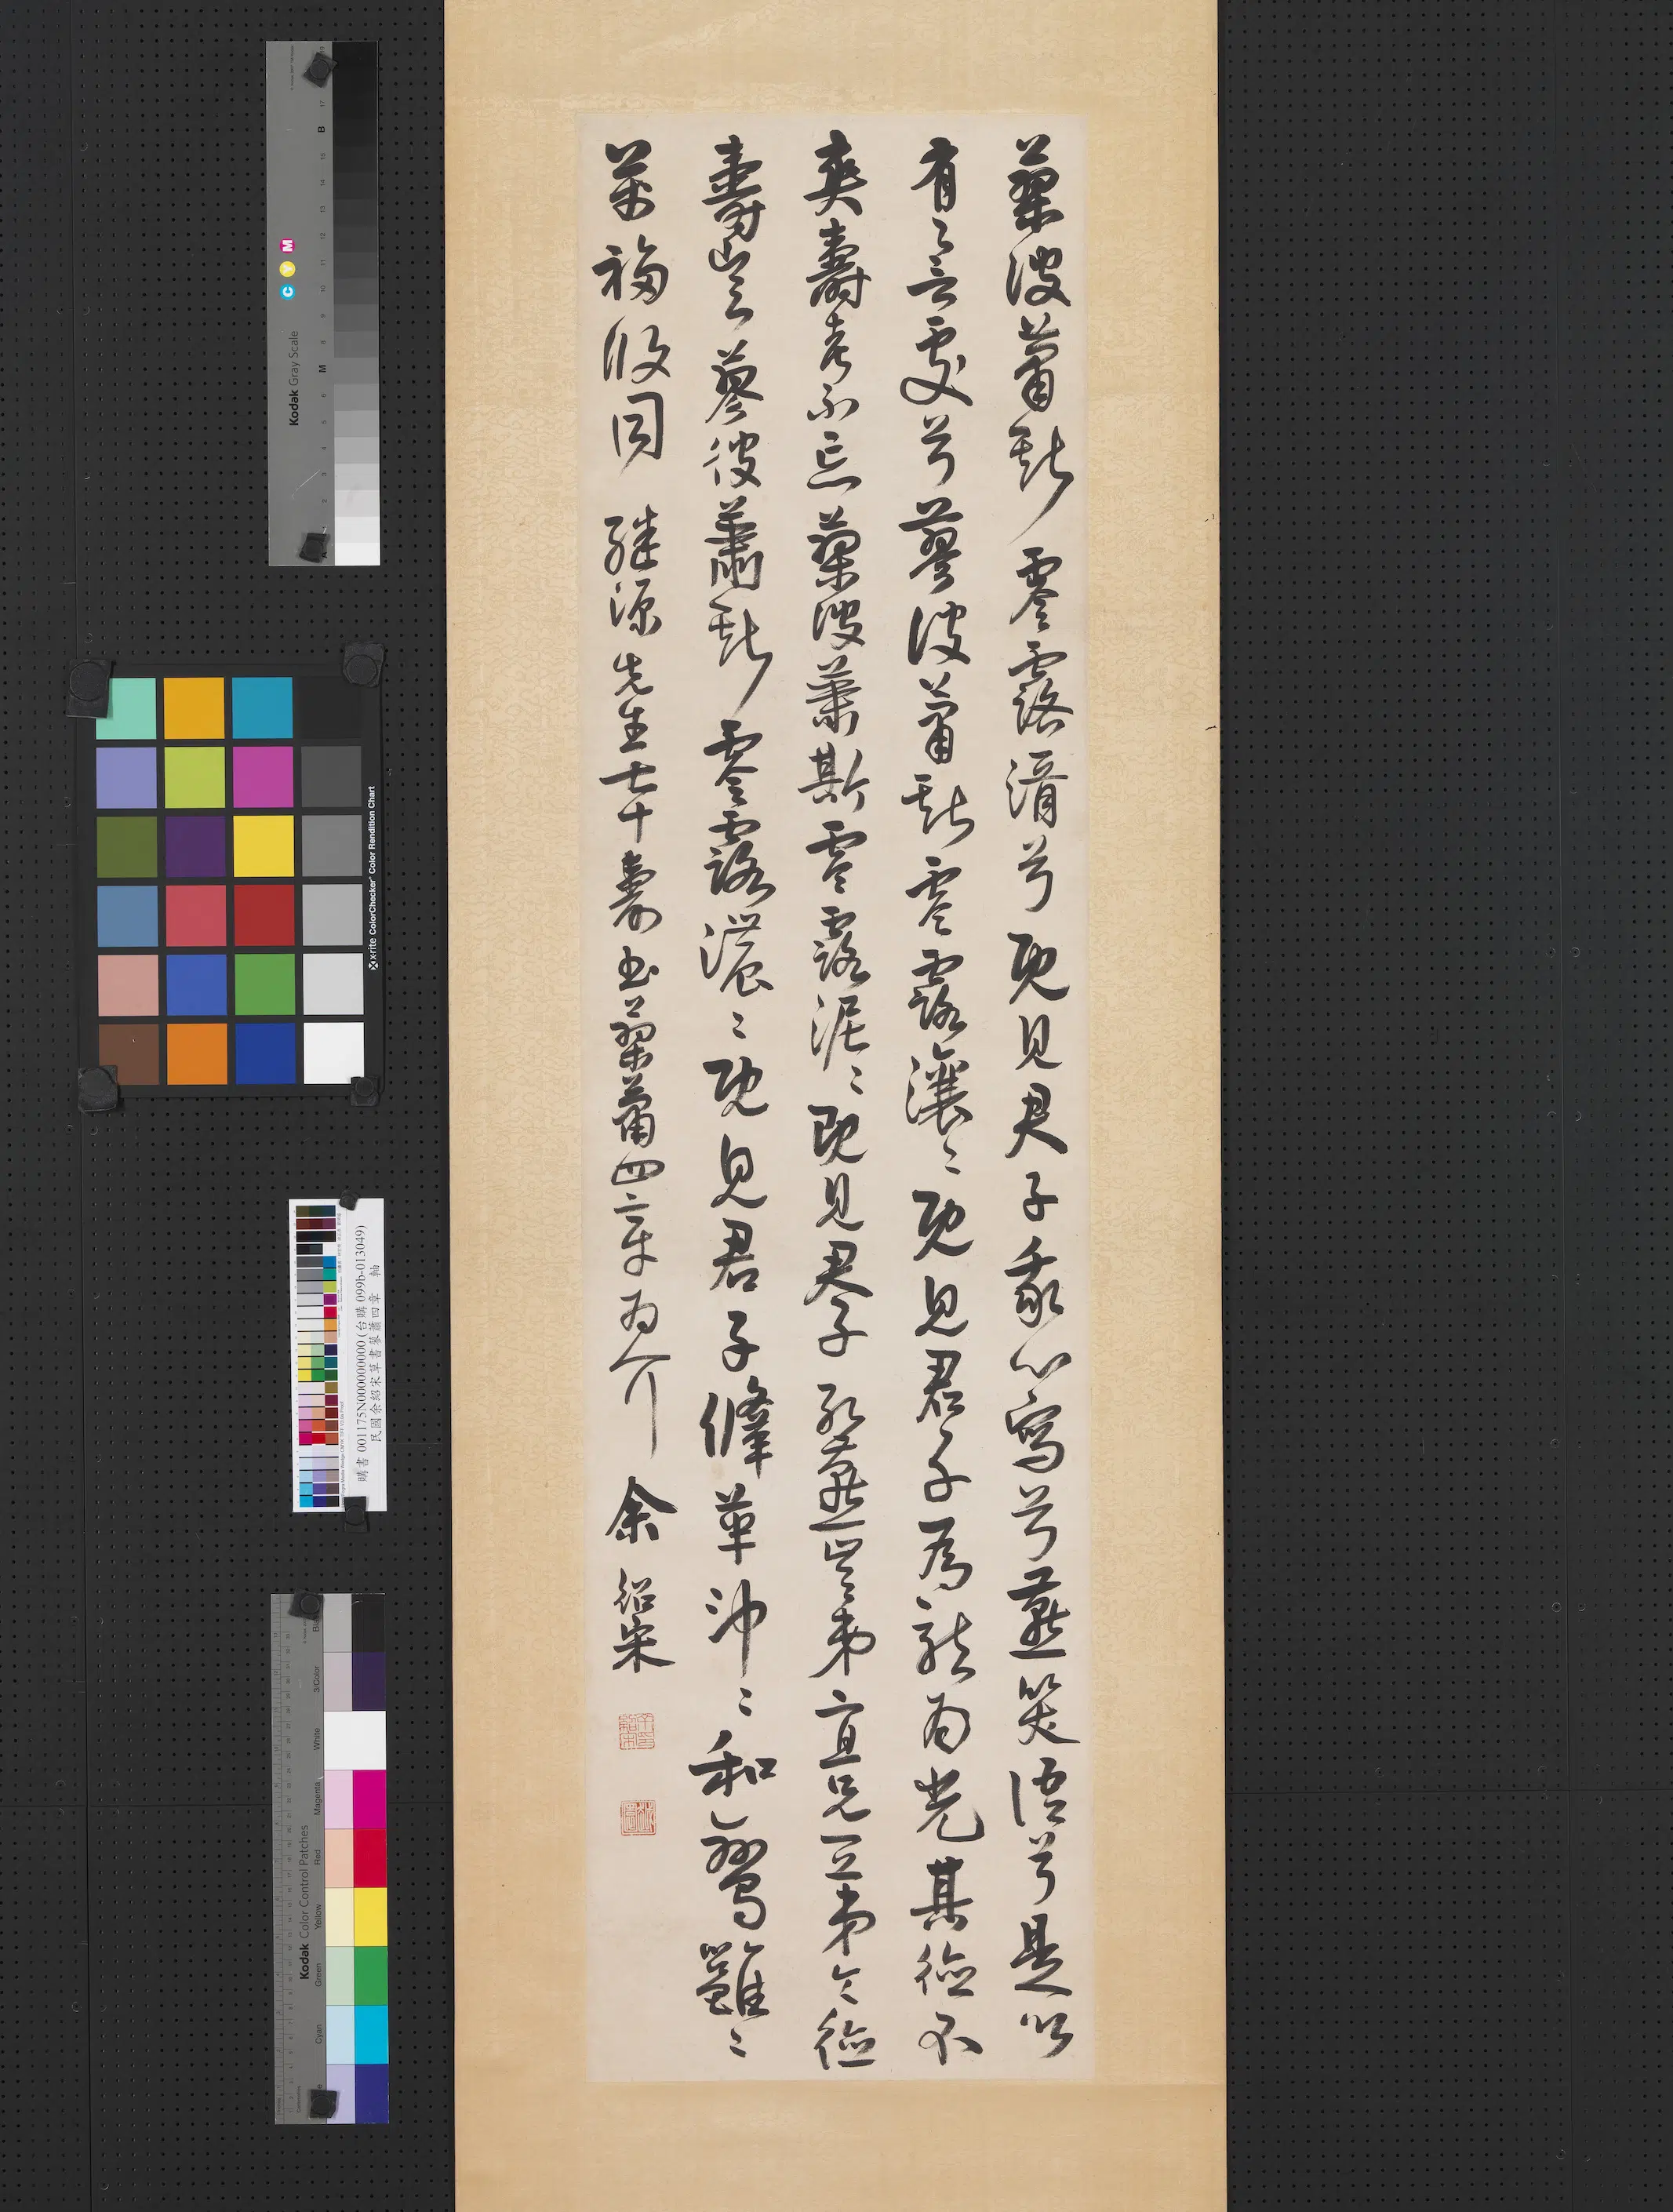 蓼彼蕭斯零露湑兮既見君子我心寫兮燕笑語兮是以
有譽處兮蓼彼蕭斯零露瀼〻既見君子為龍為光其德不
爽壽考不忘蓼彼蕭斯零露泥〻既見君子孔燕豈弟宜兄宜弟令德
壽豈蓼彼蕭斯零露濃〻既見君子鞗革沖〻和鸞雝〻
萬福攸同 繼源先生七十壽書蓼蕭四章為介 余紹宋
Kodak Gray Scale
C Y M
x-rite ColorChecker Color Rendition Chart
購書 001175N000000000 (台購 099b-013049)
民國余紹宋草書蓼蕭四章 軸
Kodak Color Control Patches
3/Color
White
Magenta
Red
Yellow
Green
Cyan